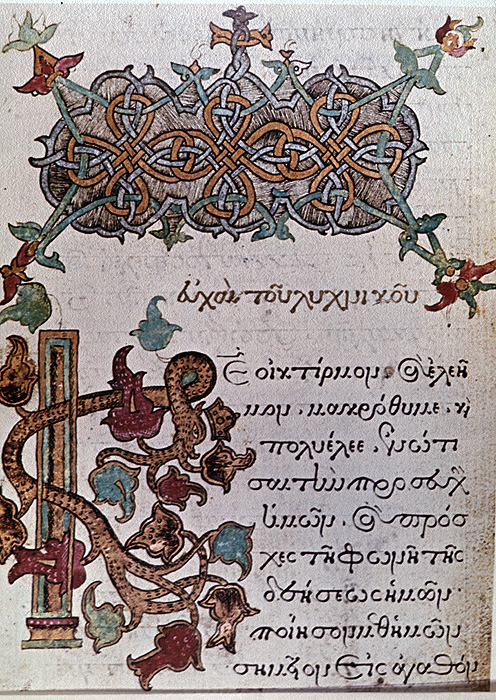 εὐχαὶ τοῦ λυχνικοῦ
Κε οἰκτίρμον. ϗ ἐλεῆ
μον. μακρόθυμε. ϗ
πολυέλεε. ἐνώτι
σαι τὴν προσευχὴ
ἡμῶν. ϗ πρόσ
χες τῆ φωνῆ τῆς
δεήσεως ἡμῶν·
ποίησον μεθ ἡμῶν
σημεῖον εἰς ἀγαθόν·